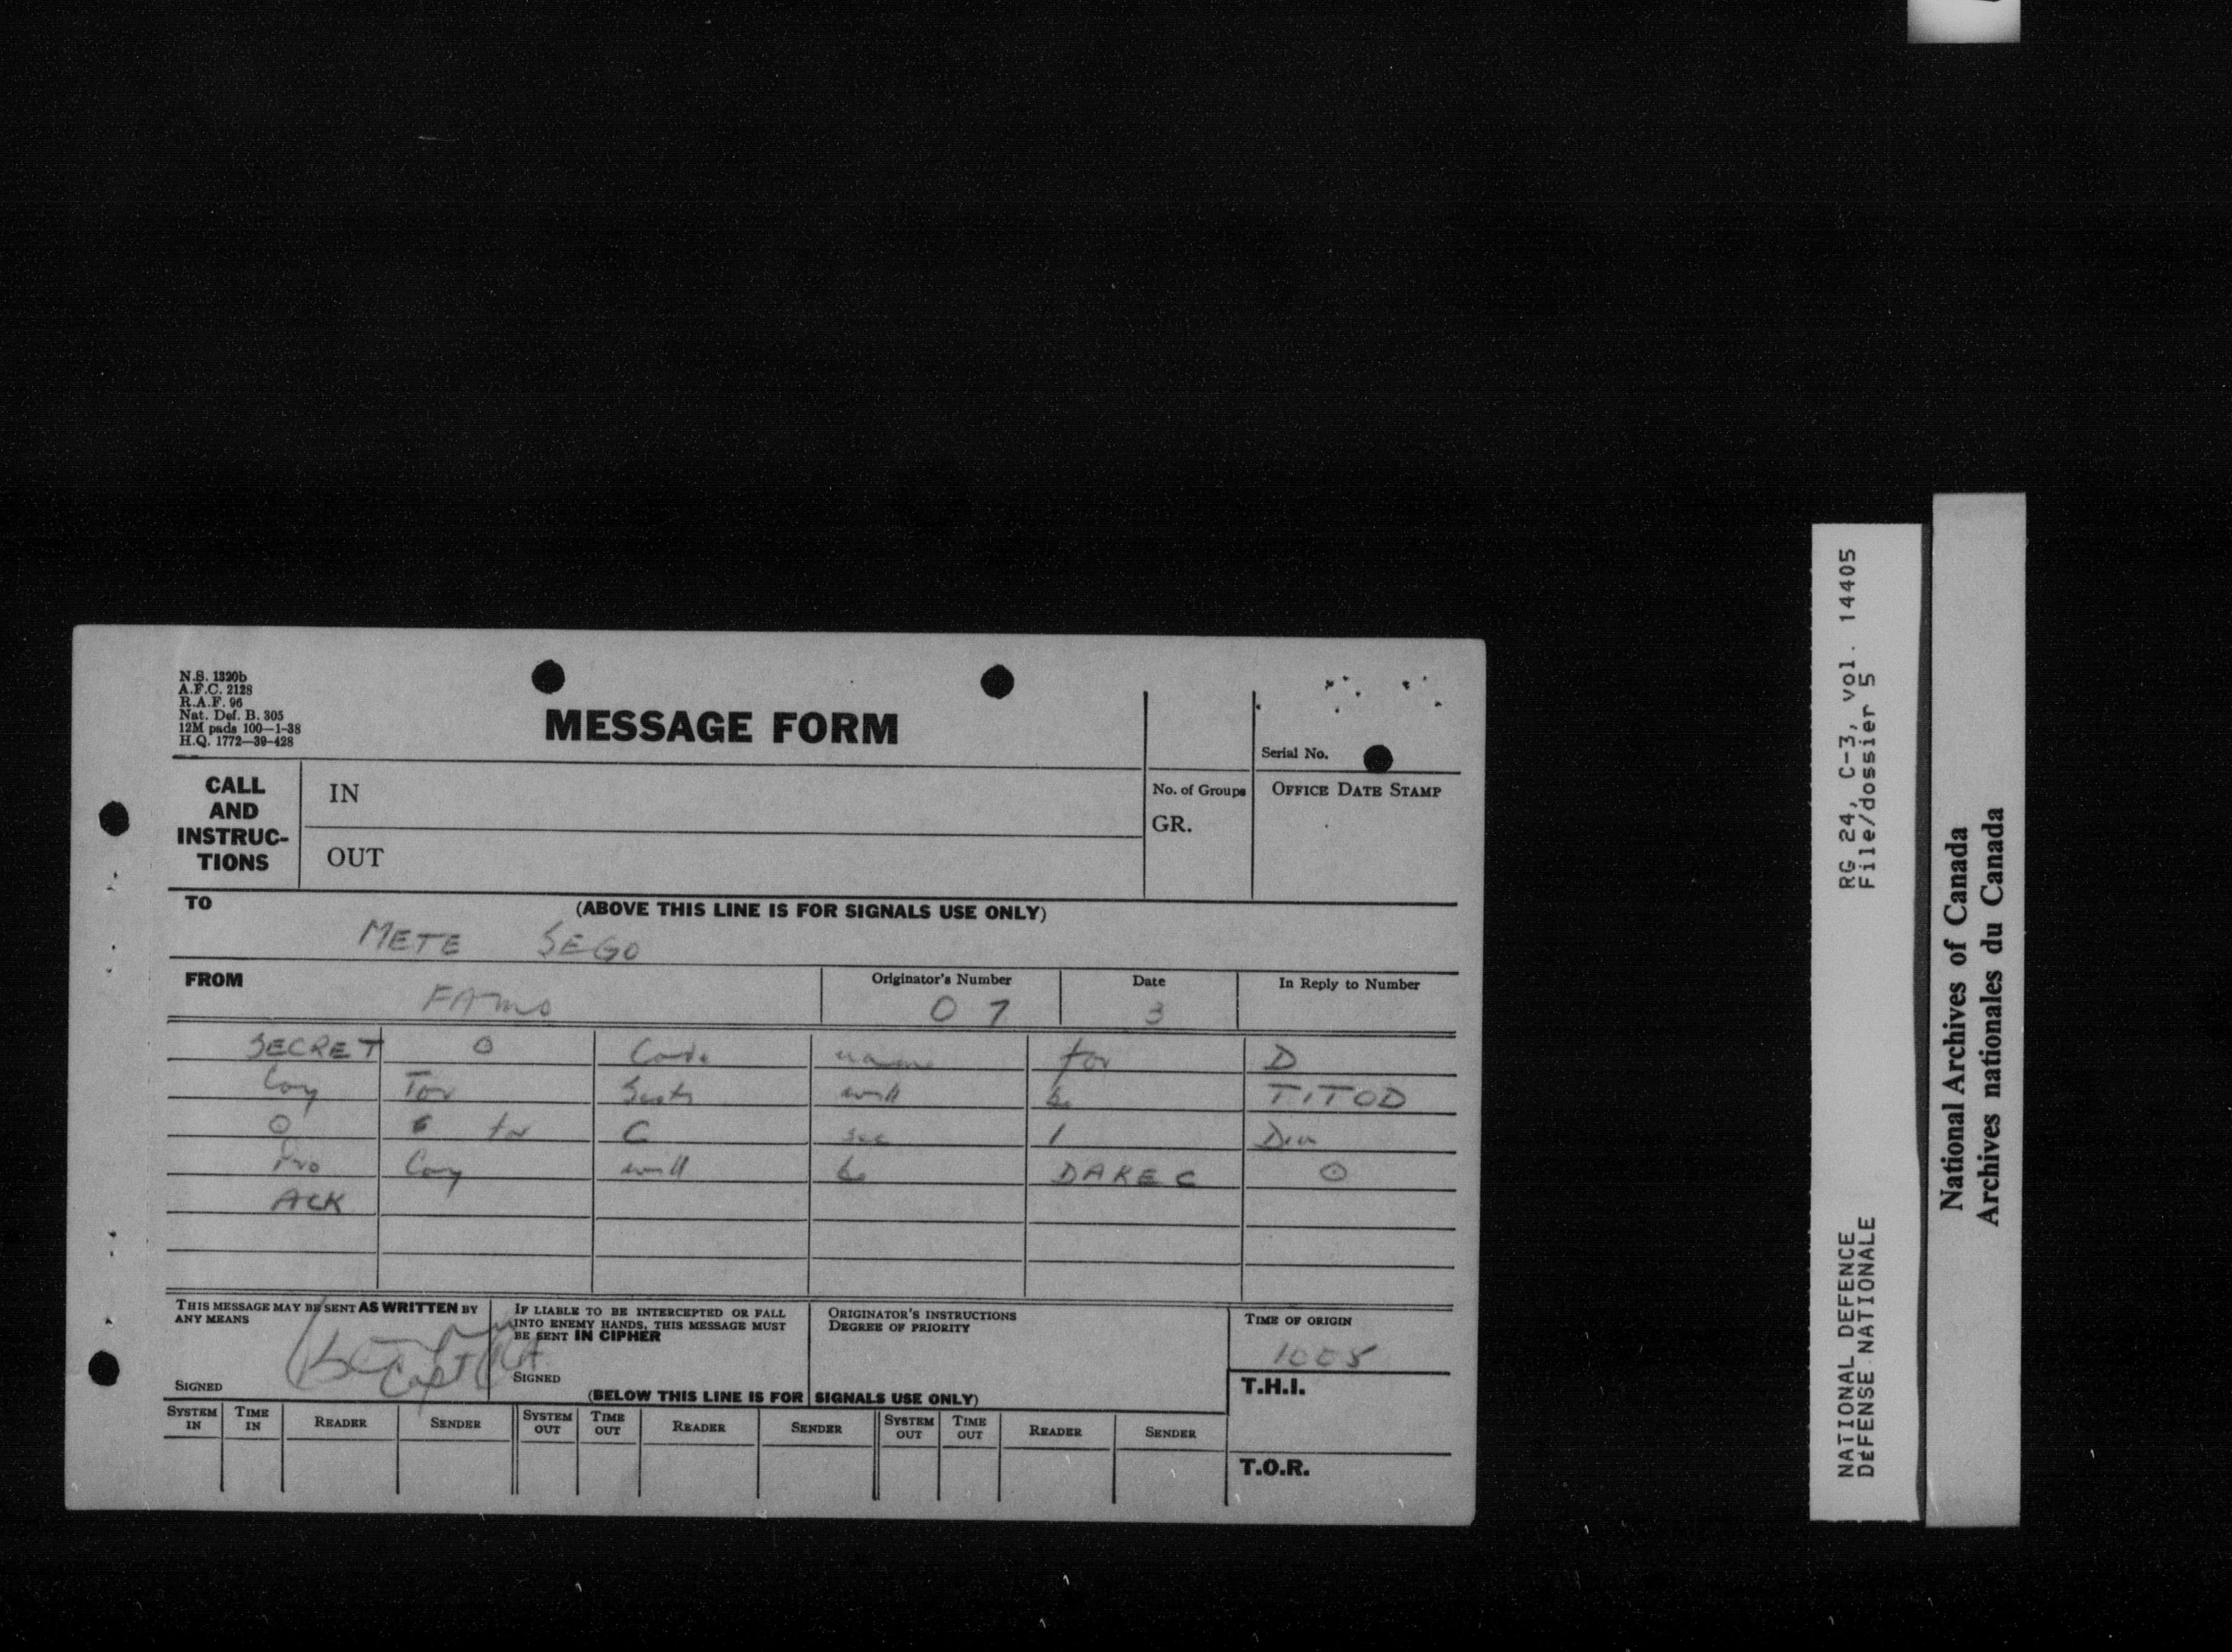 N.S. 1320b
A.F.C. 2128
R.A.F. 96
Nat. Def. B. 305
12M pads 100—1-38
H.Q. 1772—39-428
MESSAGE FORM
Serial No.
CALL AND INSTRUC-TIONS
IN
OUT
No. of Groups
GR.
OFFICE DATE STAMP
TO
(ABOVE THIS LINE IS FOR SIGNALS USE ONLY)
METE SEGO
FROM
FAMO
Originator's Number
07
Date
3
In Reply to Number
SECRET O Code name for D
Coy Tor Scots will be TITOD
O for C sec 1 Div
Pro Coy will be DAREC O
ACK
THIS MESSAGE MAY BE SENT AS WRITTEN BY ANY MEANS
SIGNED
Capt
IF LIABLE TO BE INTERCEPTED OR FALL INTO ENEMY HANDS, THIS MESSAGE MUST BE SENT IN CIPHER
SIGNED
ORIGINATOR'S INSTRUCTIONS
DEGREE OF PRIORITY
TIME OF ORIGIN
1005
T.H.I.
(BELOW THIS LINE IS FOR SIGNALS USE ONLY)
SYSTEM IN TIME IN READER SENDER SYSTEM OUT TIME OUT READER SENDER SYSTEM OUT TIME OUT READER SENDER
T.O.R.
RG 24, C-3, vol. 14405
File/dossier 5
NATIONAL DEFENCE
DEFENSE NATIONALE
National Archives of Canada
Archives nationales du Canada